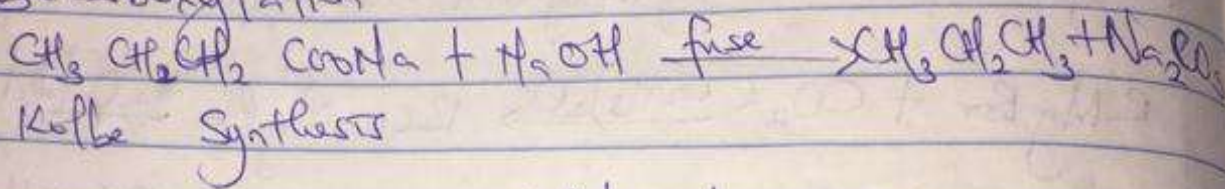 CH₃ CH₂CH₂ COONa + NaOH fuse → CH₃ CH₂CH₃ + Na₂CO₃
Kolbe Synthesis